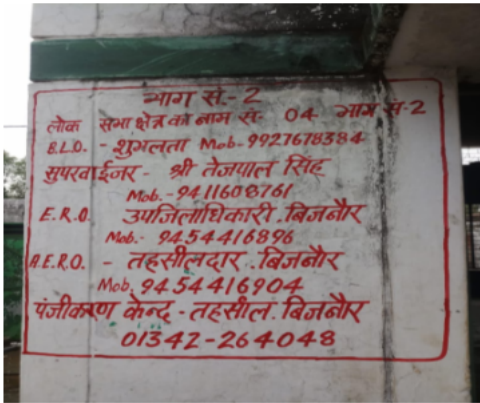 भाग सं.- 2
लोक सभा क्षेत्र का नाम स- 04 भाग स-2
B.L.O. - शुगलता Mob- 9927678384
सुपरवाईजर - श्री तेजपाल सिंह
Mob. - 9411608761
E.R.O. उपजिलाधिकारी. बिजनौर
Mob.- 9454416896
A.E.R.O. - तहसीलदार. बिजनौर
Mob. 9454416904
पंजीकरण केन्द - तहसील. बिजनौर
01342-264048